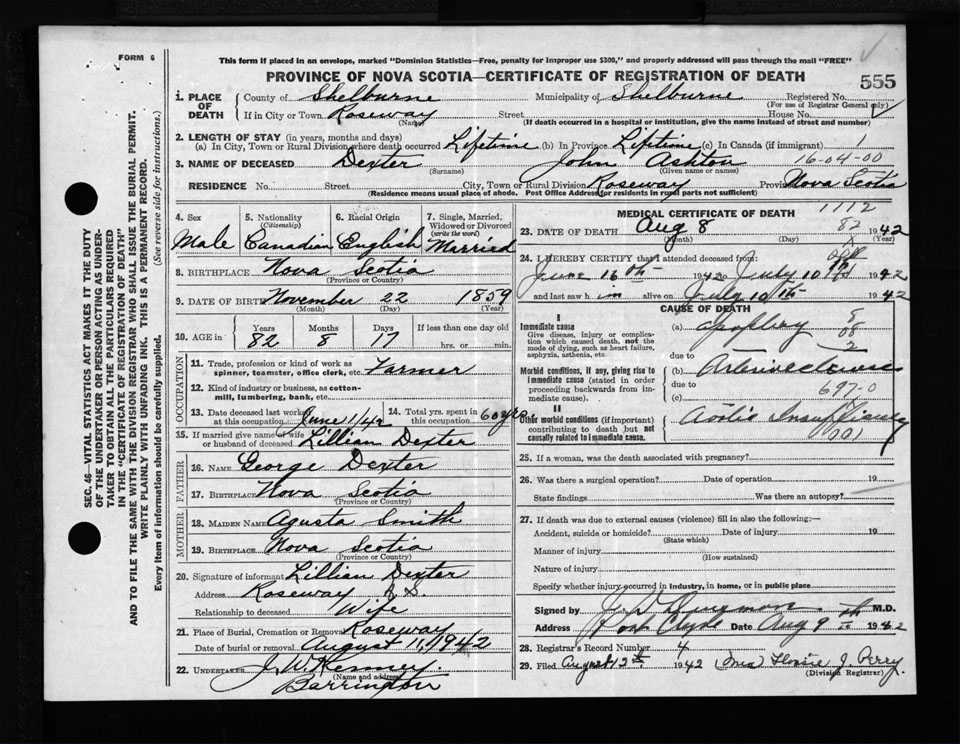 FORM 6
This form if placed in an envelope, marked "Dominion Statistics—Free, penalty for improper use $300," and properly addressed will pass through the mail "FREE"
PROVINCE OF NOVA SCOTIA—CERTIFICATE OF REGISTRATION OF DEATH
555
1. PLACE OF DEATH
County of Shelburne Municipality of Shelburne Registered No.
(For use of Registrar General only)
If in City or Town Roseway Street House No.
(Name) (If death occurred in a hospital or institution, give the name instead of street and number)
2. LENGTH OF STAY (in years, months and days)
(a) In City, Town or Rural Division where death occurred Lifetime (b) In Province Liftime (c) In Canada (if immigrant) 1
3. NAME OF DECEASED Dexter John Ashton 16-04-00
(Surname) (Given name or names)
RESIDENCE No. Street City, Town or Rural Division Roseway Province Nova Scotia
(Residence means usual place of abode. Post Office Address for residents in rural parts not sufficient)
4. Sex
Male
5. Nationality
(Citizenship)
Canadian
6. Racial Origin
English
7. Single, Married, Widowed or Divorced
(write the word)
Married
8. BIRTHPLACE Nova Scotia
(Province or Country)
9. DATE OF BIRTH November 22 1859
(Month) (Day) (Year)
10. AGE
Years Months Days If less than one day old
82 8 17 hrs. or min.
OCCUPATION
11. Trade, profession or kind of work as spinner, teamster, office clerk, etc. Farmer
12. Kind of industry or business, as cotton-mill, lumbering, bank, etc.
13. Date deceased last worked at this occupation June 1/42
14. Total yrs. spent in this occupation 60 yrs
15. If married give name of wife or husband of deceased Lillian Dexter
FATHER
16. NAME George Dexter
17. BIRTHPLACE Nova Scotia
(Province or Country)
MOTHER
18. MAIDEN NAME Agusta Smith
19. BIRTHPLACE Nova Scotia
(Province or Country)
20. Signature of informant Lillian Dexter
Address Roseway N.S.
Relationship to deceased Wife
21. Place of Burial, Cremation or Removal Roseway
Date of burial or removal August 11, 1942
22. UNDERTAKER J. W. Kenney.
(Name and address)
Barrington
MEDICAL CERTIFICATE OF DEATH
1112
23. DATE OF DEATH Aug 8 82 1942
(Month) (Day) (Year)
24. I HEREBY CERTIFY that I attended deceased from:
June 16th 1942 to July 10 1942
and last saw him alive on July 10th 1942
CAUSE OF DEATH
I
Immediate cause
Give disease, injury or complication which caused death, not the mode of dying, such as heart failure, asphyxia, asthenia, etc.
(a) apoplexy
due to
Morbid conditions, if any, giving rise to immediate cause (stated in order proceeding backwards from immediate cause).
(b) Arteriosclerosis
due to
(c) 697-0
II
Other morbid conditions (if important) contributing to death but not causally related to immediate cause.
Aortic Insufficiency
001
25. If a woman, was the death associated with pregnancy?
26. Was there a surgical operation? Date of operation 19
State findings Was there an autopsy?
27. If death was due to external causes (violence) fill in also the following:—
Accident, suicide or homicide? Date of injury 19
(State which)
Manner of injury
(How sustained)
Nature of injury
Specify whether injury occurred in industry, in home, or in public place
Signed by M.D.
Address Port Clyde Date Aug 9th 1942
28. Registrar's Record Number 4
29. Filed August 12th 1942 J. Perry.
(Division Registrar)
SEC. 46—VITAL STATISTICS ACT MAKES IT THE DUTY
OF THE UNDERTAKER OR PERSON ACTING AS UNDER-
TAKER TO OBTAIN ALL THE PARTICULARS REQUIRED
IN THE "CERTIFICATE OF REGISTRATION OF DEATH"
AND TO FILE THE SAME WITH THE DIVISION REGISTRAR WHO SHALL ISSUE THE BURIAL PERMIT.
WRITE PLAINLY WITH UNFADING INK. THIS IS A PERMANENT RECORD.
Every item of information should be carefully supplied. (See reverse side for instructions.)